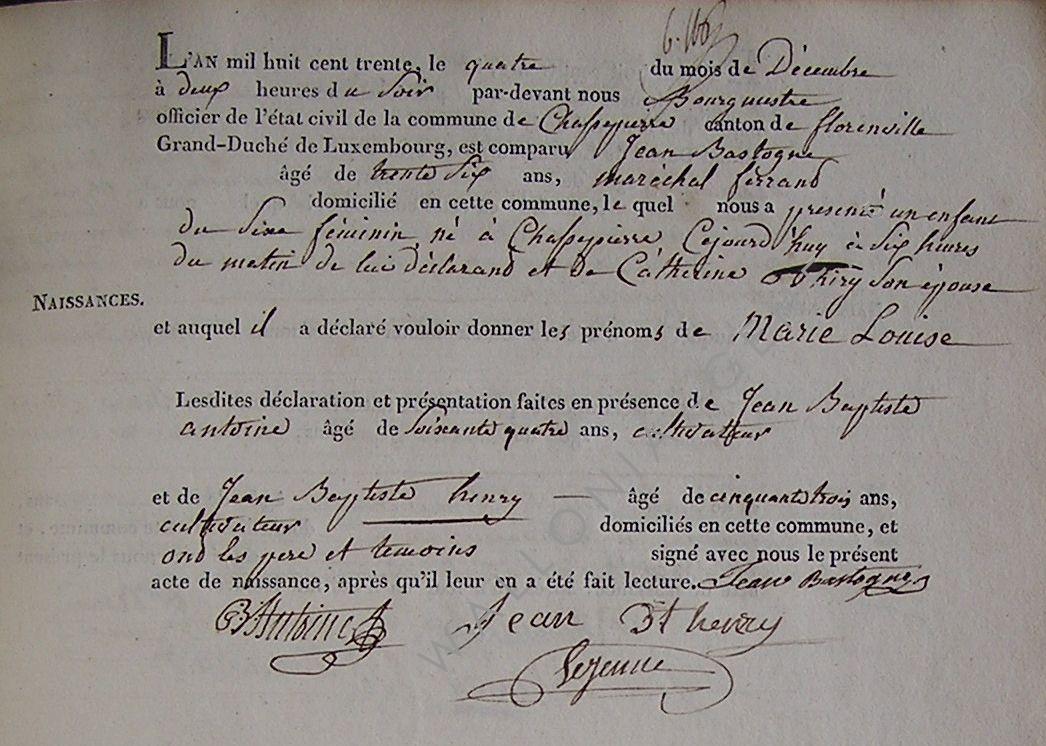 L'AN mil huit cent trente, le quatre du mois de Décembre
à deux heures du Soir par-devant nous Bourgmestre
officier de l'état civil de la commune de Chassepierre canton de florenville
Grand-Duché de Luxembourg, est comparu Jean Bastogne
âgé de trente Six ans, maréchal ferrand
domicilié en cette commune, le quel nous a presenté un enfant
du sexe féminin, né à Chassepierre, Cejourd'huy à Six heures
du matin de lui déclarand et de Catherine Thiry Son épouse
NAISSANCES.
et auquel il a déclaré vouloir donner les prénoms de Marie Louise
Lesdites déclaration et présentation faites en présence de Jean Baptiste
antoine âgé de Soixante quatre ans, cultivateur
et de Jean Baptiste henry — âgé de cinquante trois ans,
cultivateur domiciliés en cette commune, et
ond les pere et temoins signé avec nous le présent
acte de naissance, après qu'il leur en a été fait lecture. Jean Bastogne
JB Antoine Jean Bt henry
Lejeune